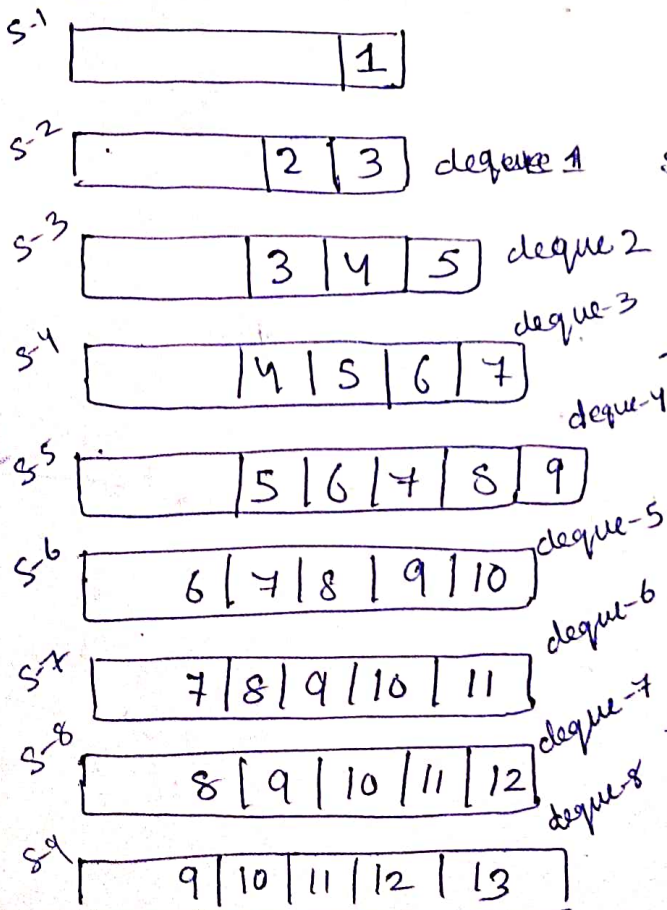 S-1 1
S-2 2 3 deqeue 1
S-3 3 4 5 deque 2
S-4 4 5 6 7 deque-3
S-5 5 6 7 8 9 deque-4
S-6 6 7 8 9 10 deque-5
S-7 7 8 9 10 11 deque-6
S-8 8 9 10 11 12 deque-7
S-9 9 10 11 12 13 deque-8